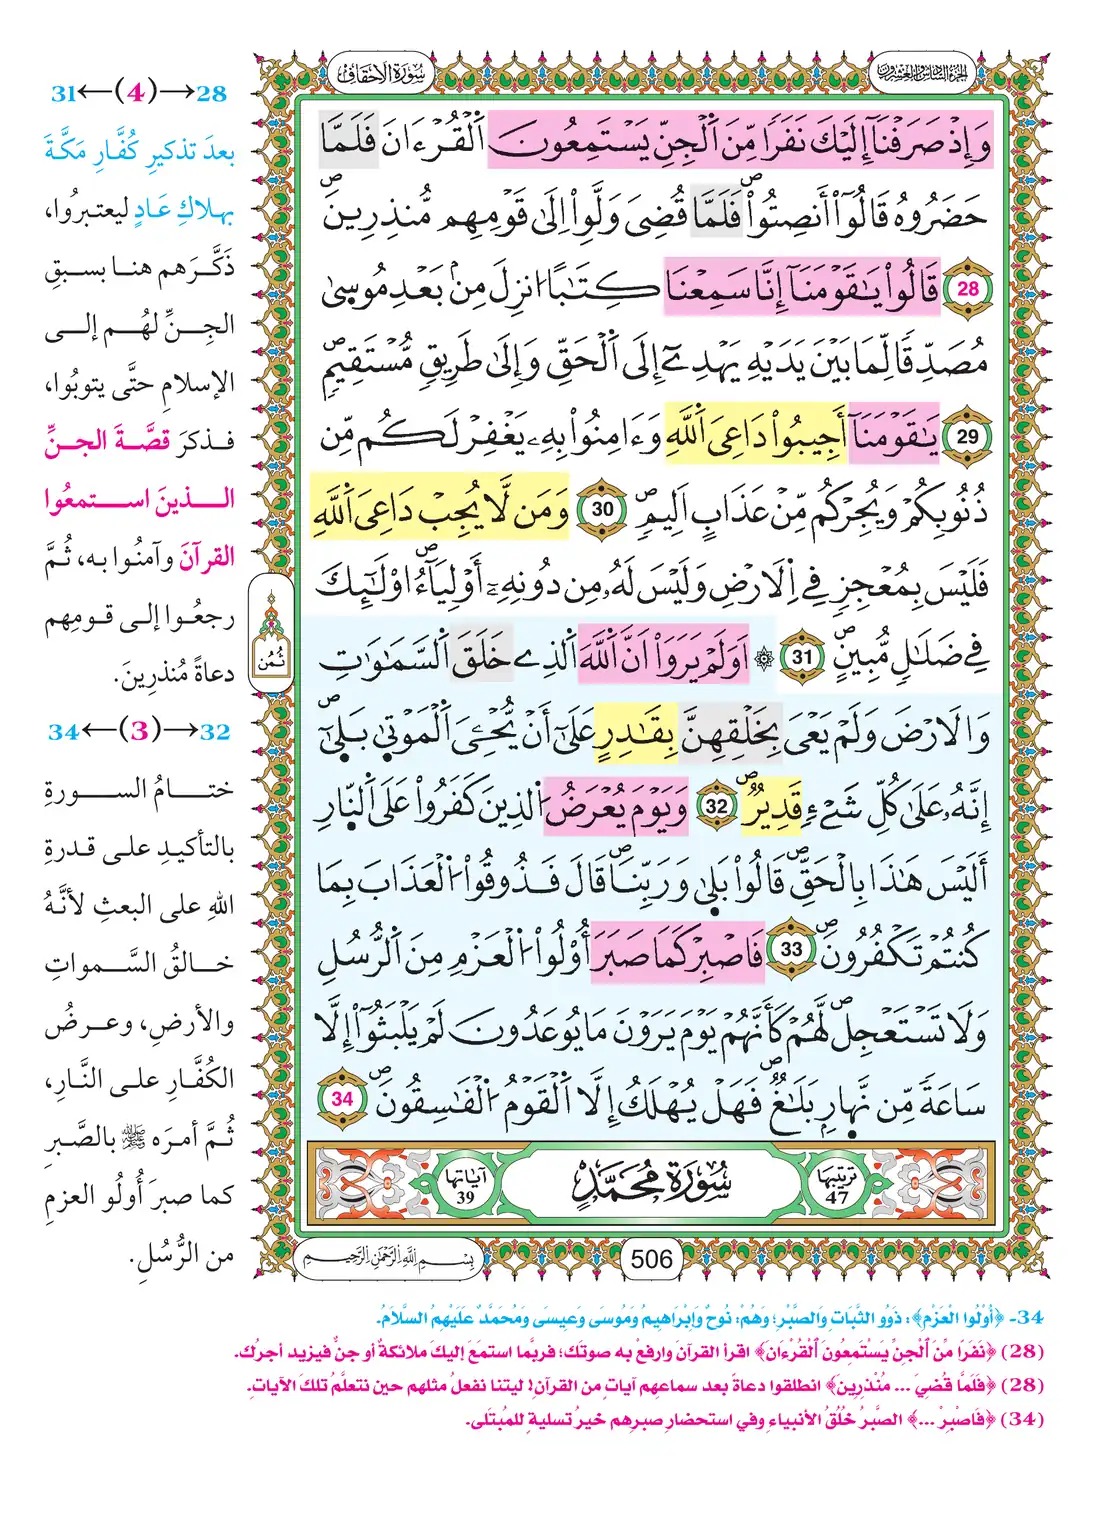 الجزء السادس والعشرون
سورة الأحقاف
وَإِذْ صَرَفْنَآ إِلَيْكَ نَفَرًا مِّنَ ٱلْجِنِّ يَسْتَمِعُونَ ٱلْقُرْءَانَ فَلَمَّا
حَضَرُوهُ قَالُوٓاْ أَنصِتُواْ فَلَمَّا قُضِىَ وَلَّوِاْ اِلَىٰ قَوْمِهِم مُّنذِرِينَ
28 قَالُواْ يَٰقَوْمَنَآ إِنَّا سَمِعْنَا كِتَٰبًا انزِلَ مِنۢ بَعْدِ مُوسىٰ
مُصَدِّقًا لِّمَا بَيْنَ يَدَيْهِ يَهْدِےٓ إِلَى ٱلْحَقِّ وَإِلَىٰ طَرِيقٍ مُّسْتَقِيمٍ
29 يَٰقَوْمَنَآ أَجِيبُواْ دَاعِىَ ٱللَّهِ وَءَامِنُواْ بِهِۦ يَغْفِرْ لَكُم مِّن
ذُنُوبِكُمْ وَيُجِرْكُم مِّنْ عَذَابٍ اَلِيمٍ 30 وَمَن لَّا يُجِبْ دَاعِىَ ٱللَّهِ
فَلَيْسَ بِمُعْجِزٍ فِے اِلَارْضِ وَلَيْسَ لَهُۥ مِن دُونِهِۦٓ أَوْلِيَآءُ اوْلَٰٓئِكَ
فِے ضَلَٰلٍ مُّبِينٍ 31 ۞ اَوَلَمْ يَرَوَاْ اَنَّ ٱللَّهَ ٱلَّذِے خَلَقَ ٱلسَّمَٰوَٰتِ
وَالَارْضَ وَلَمْ يَعْىَ بِخَلْقِهِنَّ بِقَٰدِرٍ عَلَىٰٓ أَنْ يُّحْـِۧىَ ٱلْمَوْتىٰ بَلىٰٓ
إِنَّهُۥ عَلَىٰ كُلِّ شَےْءٍ قَدِيرٌ 32 وَيَوْمَ يُعْرَضُ ٱلذِينَ كَفَرُواْ عَلَى ٱلنّارِ
أَلَيْسَ هَٰذَا بِالْحَقِّ قَالُواْ بَلىٰ وَرَبِّنَا قَالَ فَذُوقُواْ اُلْعَذَابَ بِمَا
كُنتُمْ تَكْفُرُونَ 33 فَاصْبِرْ كَمَا صَبَرَ أُوْلُواْ اُلْعَزْمِ مِنَ ٱلرُّسُلِ
وَلَا تَسْتَعْجِل لَّهُمْ كَأَنَّهُمْ يَوْمَ يَرَوْنَ مَا يُوعَدُونَ لَمْ يَلْبَثُوٓاْ إِلَّا
سَاعَةً مِّن نَّهارٍ بَلَٰغٌ فَهَلْ يُهْلَكُ إِلَّا ٱلْقَوْمُ اُلْفَٰسِقُونَ 34
ترتيبها 47 سُورَةُ مُحَمَّدٍ آياتها 39
506
بِسْمِ اِللَّهِ اِلرَّحْمَٰنِ اِلرَّحِيمِ
ثُمُن
28→(4)←31
بعدَ تذكيرِ كُفَّارِ مَكَّةَ
بهلاكِ عَادٍ ليعتبرُوا،
ذَكَّرَهم هنا بسبقِ
الجِنِّ لهُم إلى
الإسلامِ حتَّى يتوبُوا،
فذكرَ قصَّةَ الجنِّ
الذينَ استمعُوا
القرآنَ وآمنُوا به، ثُمَّ
رجعُوا إلى قومِهم
دعاةً مُنذرِينَ.
32→(3)←34
ختامُ السورةِ
بالتأكيدِ على قدرةِ
اللهِ على البعثِ لأنَّهُ
خالقُ السَّمواتِ
والأرضِ، وعرضُ
الكُفَّارِ على النَّارِ،
ثُمَّ أمرَه ﷺ بالصَّبرِ
كما صبرَ أُولُو العزمِ
من الرُّسُلِ.
34- ﴿أُوْلُوا الْعَزْمِ﴾: ذَوُو الثَّبَاتِ وَالصَّبْرِ؛ وَهُمْ: نُوحٌ وَإِبْرَاهِيمُ وَمُوسَى وَعِيسَى وَمُحَمَّدٌ عَلَيْهِمُ السَّلَامُ.
(28) ﴿نَفَرًا مِّنَ ٱلْجِنِّ يَسْتَمِعُونَ ٱلْقُرْءَانَ﴾ اقرأ القرآنَ وارفعْ به صوتَك؛ فربَّما استمَعَ إليكَ ملائكةٌ أو جنٌّ فيزيد أجرُك.
(28) ﴿فَلَمَّا قُضِيَ ... مُّنْذِرِينَ﴾ انطلقوا دعاةً بعد سماعِهم آياتٍ من القرآنِ! ليتنا نفعلُ مثلهم حين نتعلَّمُ تلكَ الآياتِ.
(34) ﴿فَاصْبِرْ ...﴾ الصَّبرُ خُلُقُ الأنبياءِ وفي استحضارِ صبرِهم خيرُ تسليةٍ للمُبتلَى.